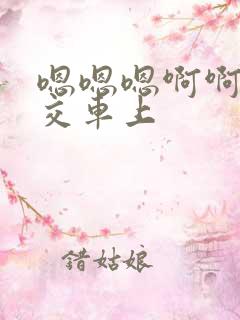 嗯嗯嗯啊啊
交车上
错姑娘